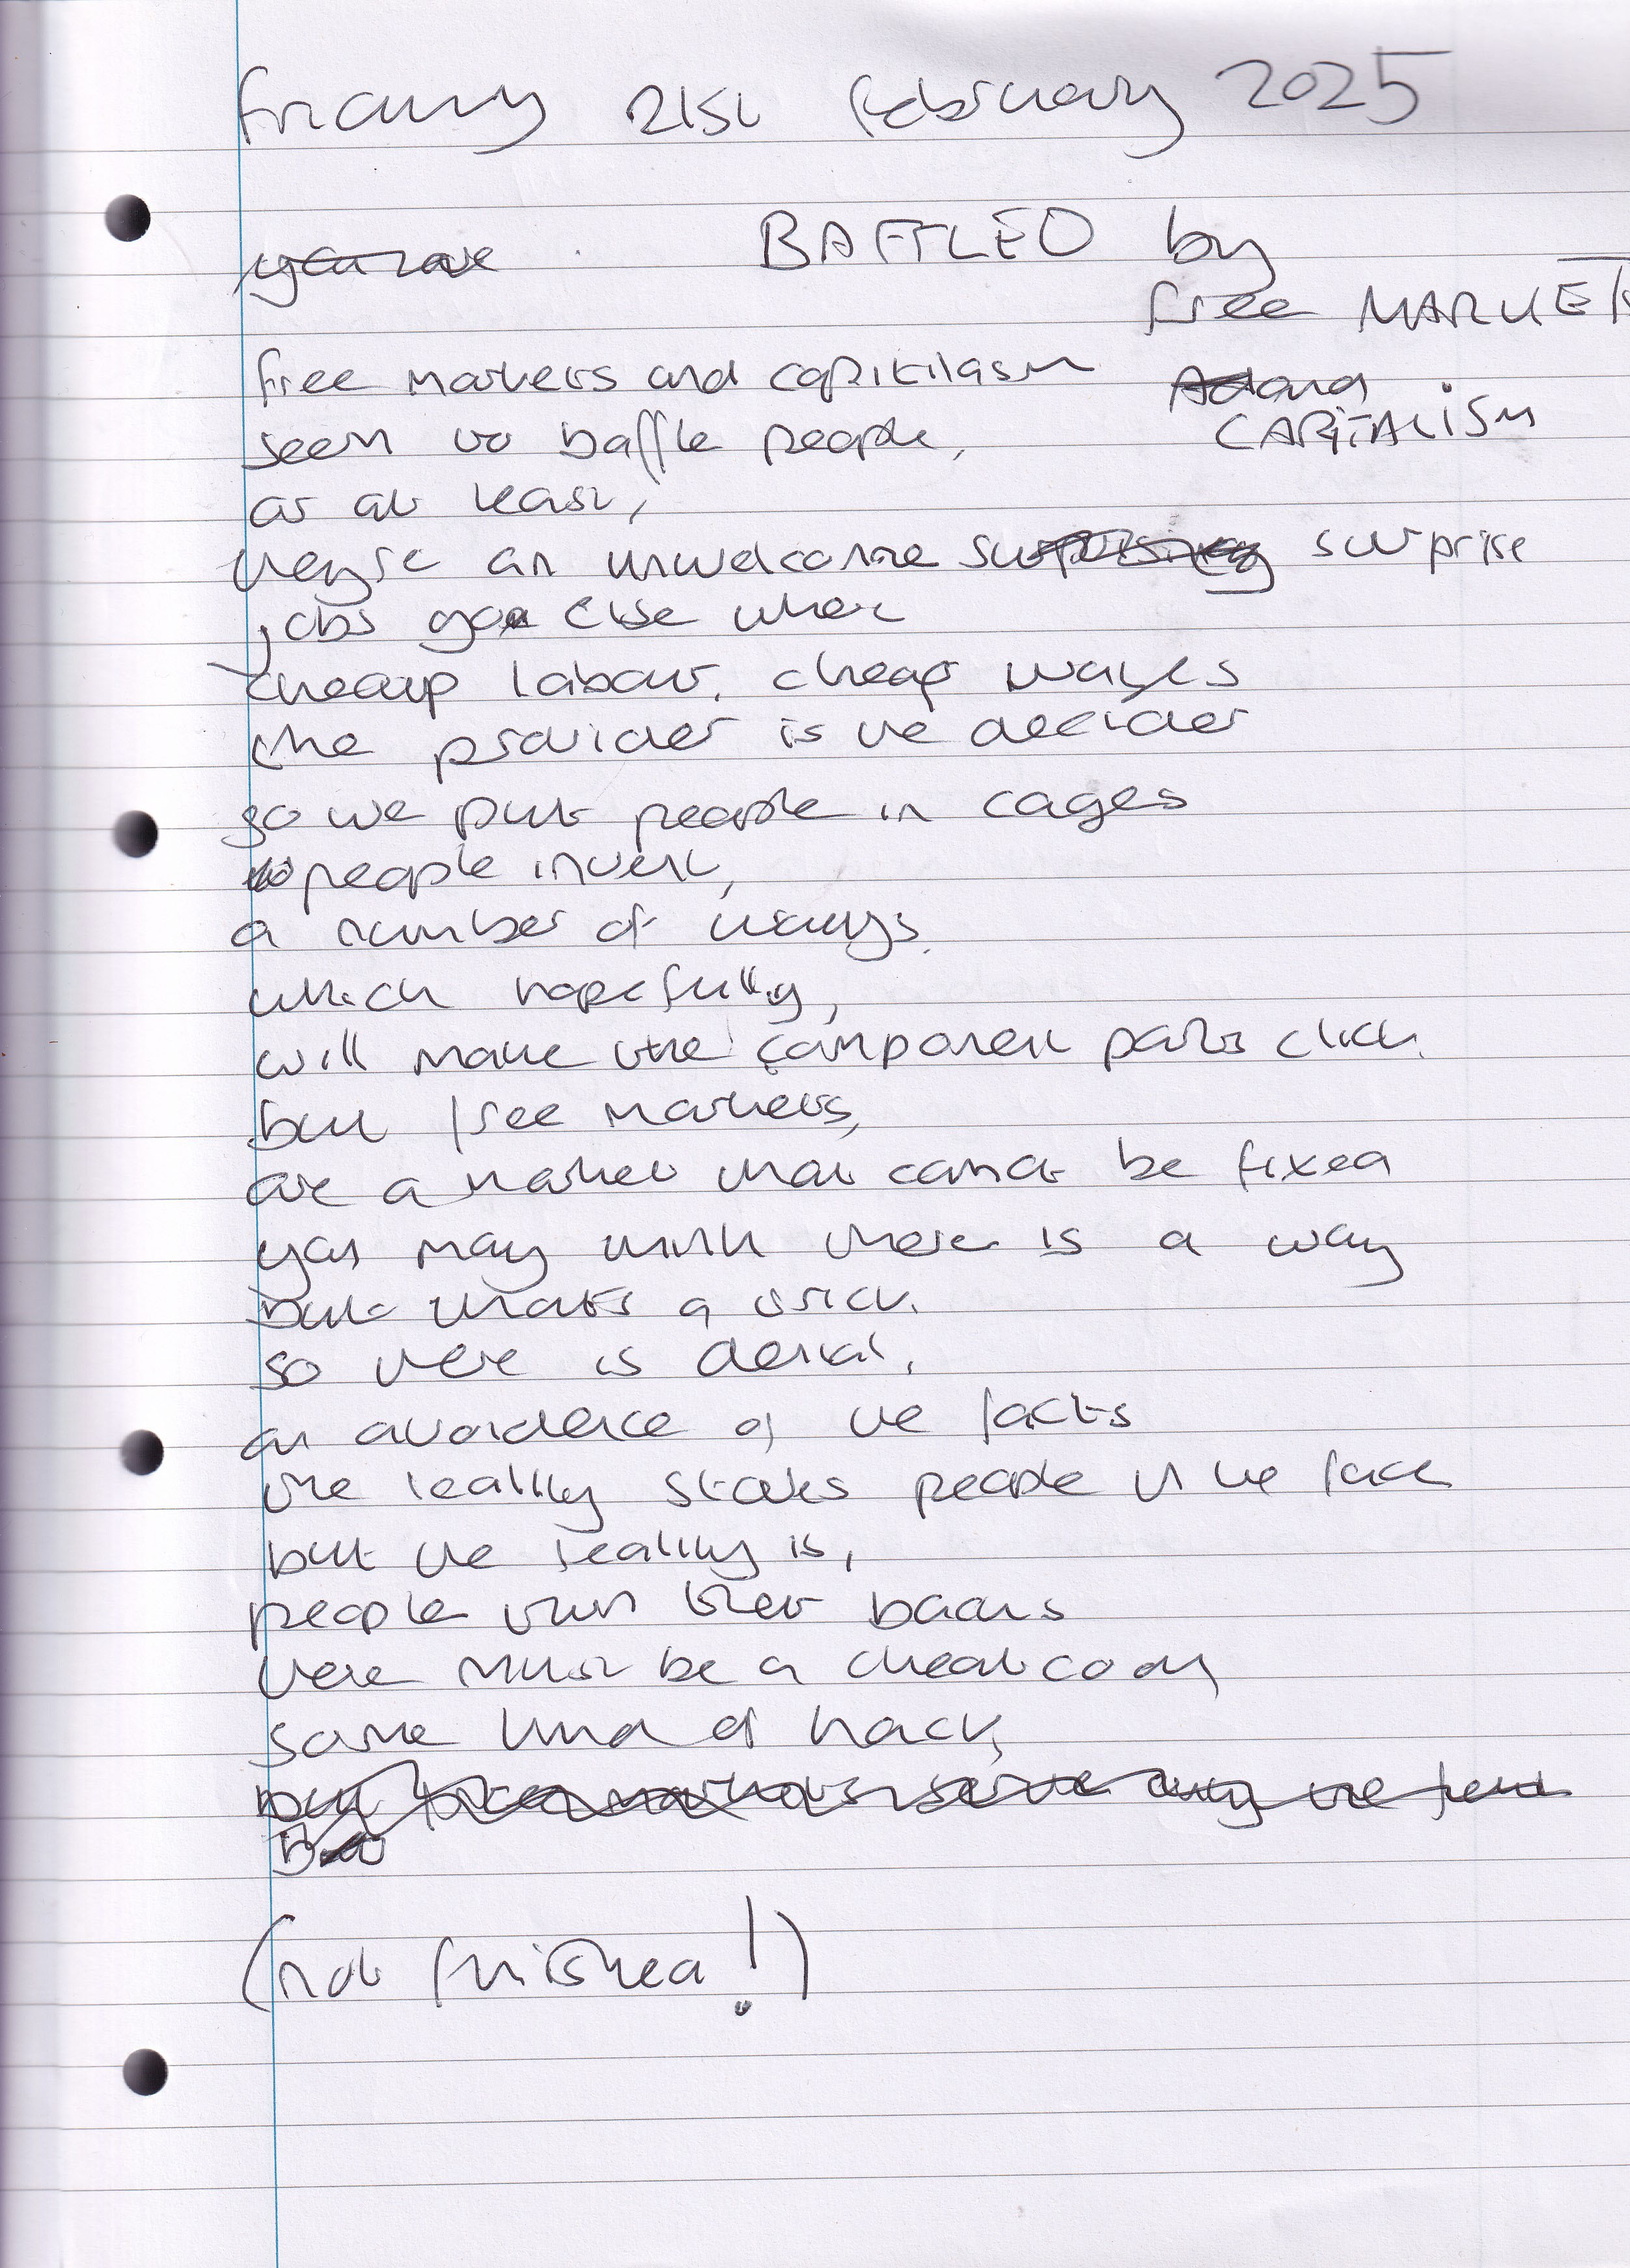 Friday 21st February 2025
BAFFLED by
free MARKETS
and
CAPITALISM
free markets and capitilasm
seem to baffle people,
or at least,
they're an unwelcome surprise
jobs go else where
cheap labour, cheap wages
the provider is the decider
so we put people in cages
people invent,
a number of ways.
which hopefully,
will make the component parts click.
but free markets,
are a market that cannot be fixed
you may think there is a way
but thats a trick.
so there is denial,
an avoidence of the facts
the reality stares people in the face
but the reality is,
people turn their backs
there must be a cheat code,
some kind of hack,
(not finished!)